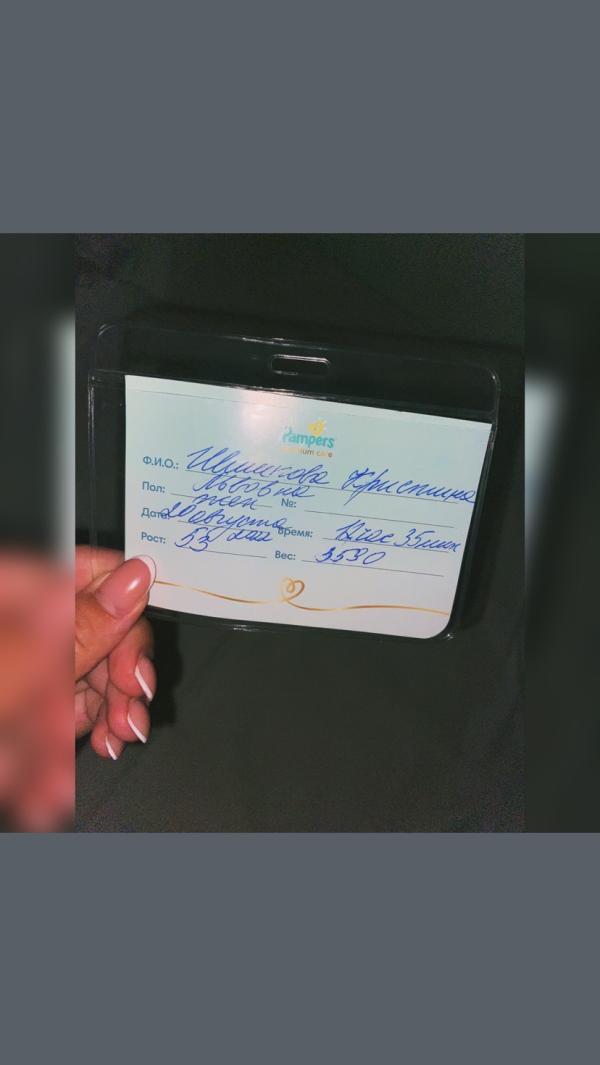 Pampers
premium care
Ф.И.О.: Шишкова Кристина
Львовна
Пол: жен №:
Дата: 20 августа 2022 Время: 35 мин
Рост: 53 Вес: 3530